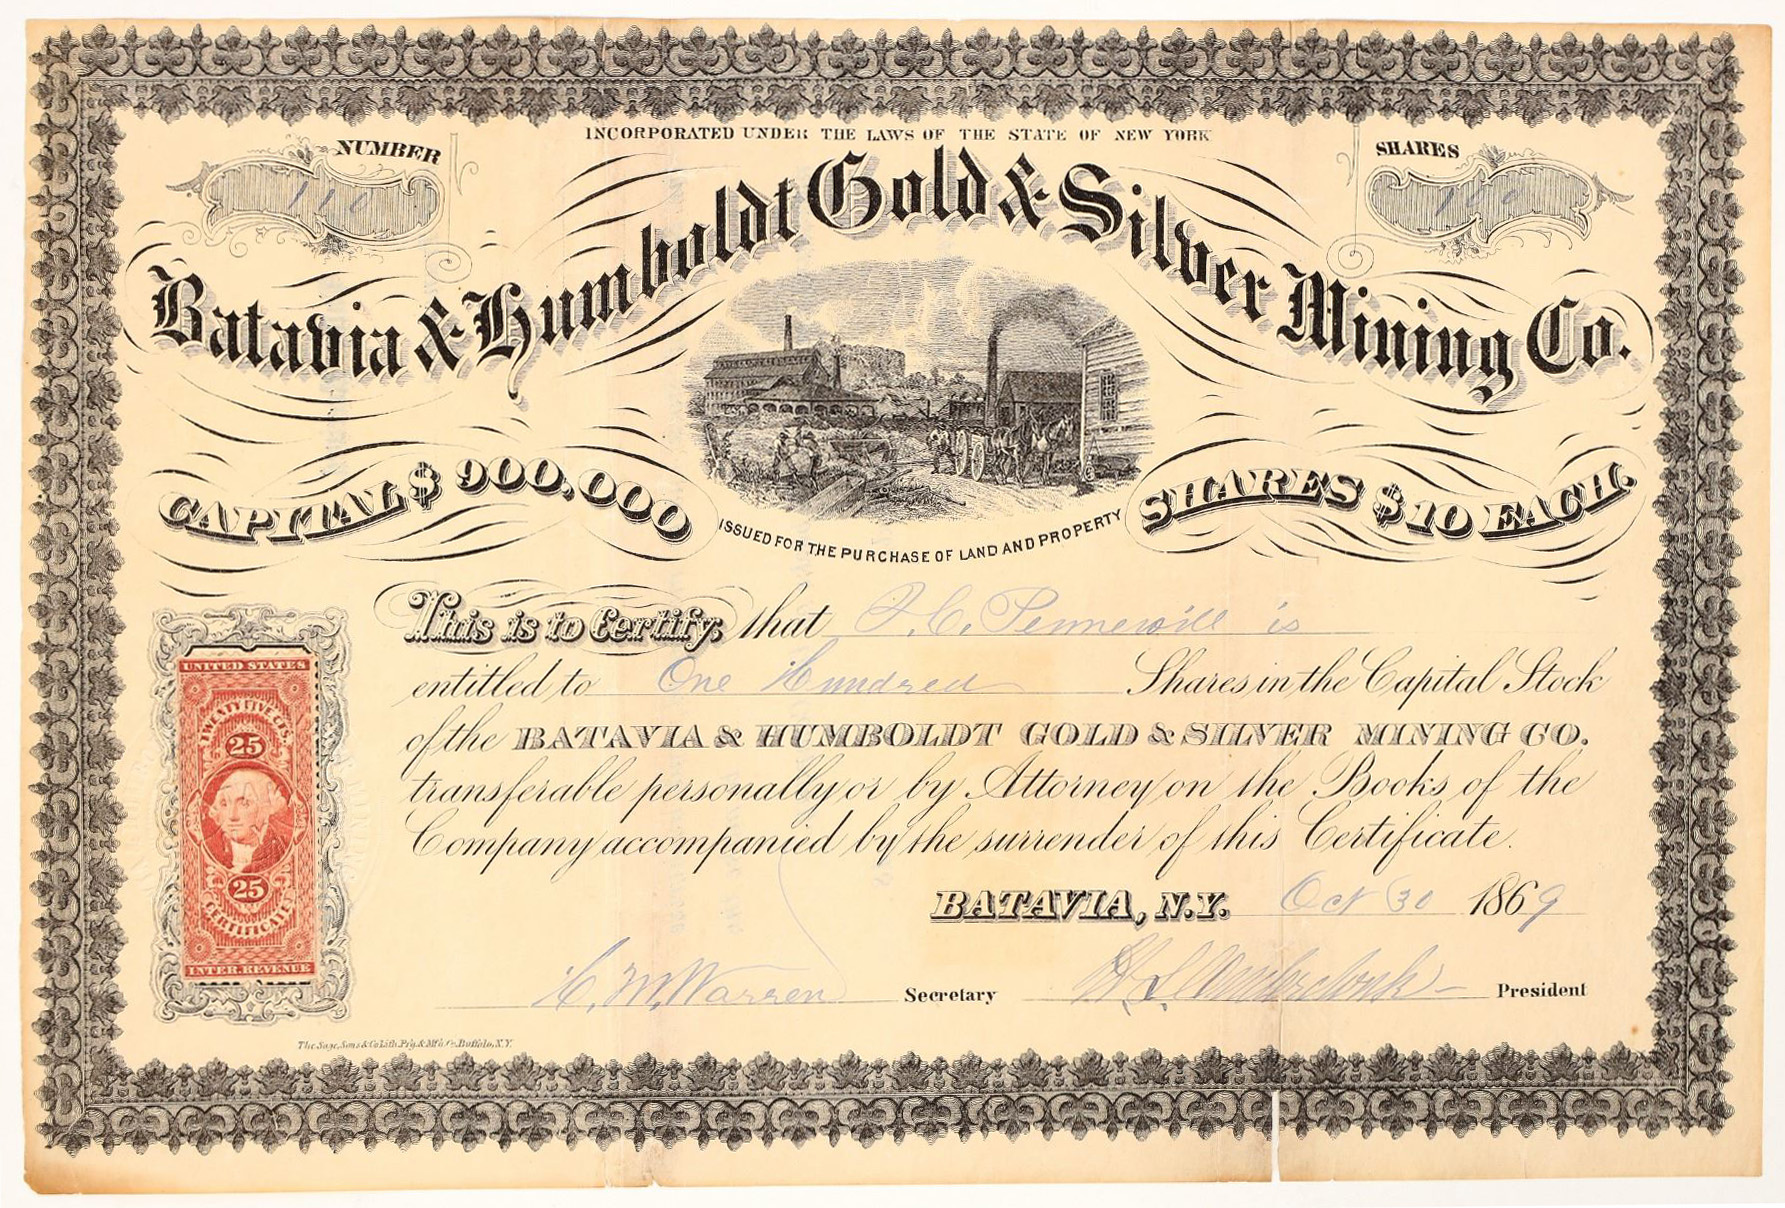 INCORPORATED UNDER THE LAWS OF THE STATE OF NEW YORK
NUMBER
110
SHARES
100
Batavia & Humboldt Gold & Silver Mining Co.
CAPITAL $ 900,000
SHARES $10 EACH.
ISSUED FOR THE PURCHASE OF LAND AND PROPERTY
This is to Certify, that J. C. Pennewill is
entitled to One Hundred Shares in the Capital Stock
of the BATAVIA & HUMBOLDT GOLD & SILVER MINING CO.
transferable personally or by Attorney on the Books of the
Company accompanied by the surrender of this Certificate.
BATAVIA, N.Y. Oct 30 1869
C. M. Warren Secretary President
UNITED STATES
TWENTY FIVE CTS.
25
25
CERTIFICATE
INTER. REVENUE
The Sage, Sons & Co Lith. Ptg. & M'f'g Co. Buffalo, N.Y.